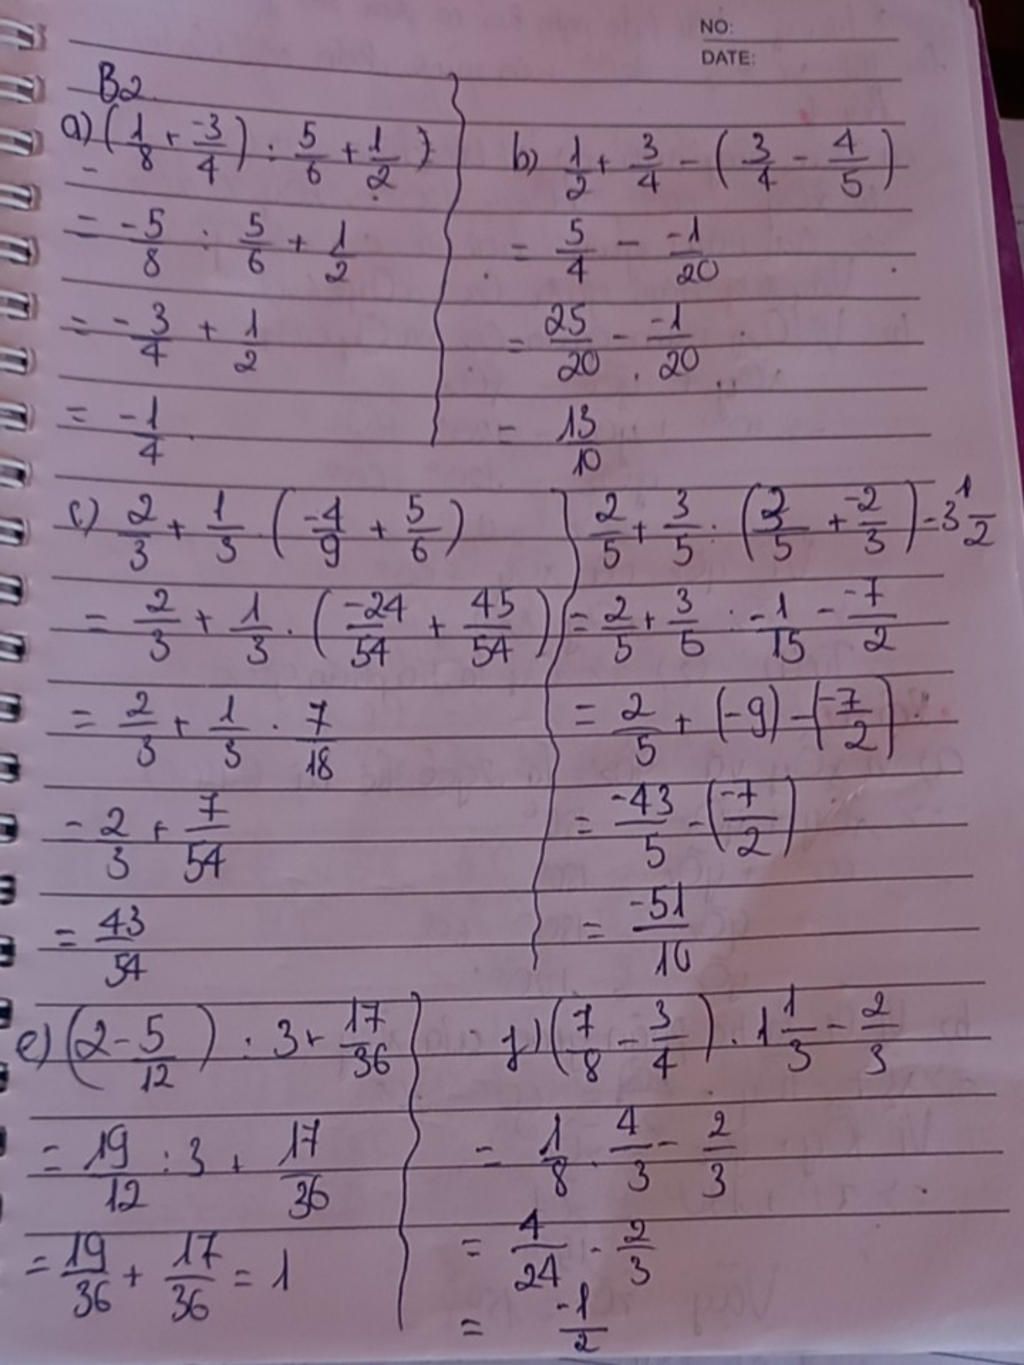 NO:
DATE:
B2
a) (1/8 + -3/4) : 5/6 + 1/2)
= -5/8 : 5/6 + 1/2
= -3/4 + 1/2
= -1/4
b) 1/2 + 3/4 - (3/4 - 4/5)
= 5/4 - -1/20
= 25/20 - -1/20
= 13/10
c) 2/3 + 1/3 . (-4/9 + 5/6)
= 2/3 + 1/3 . (-24/54 + 45/54)
= 2/3 + 1/3 . 7/18
= 2/3 + 7/54
= 43/54
2/5 + 3/5 : (3/5 + -2/3) - 3 1/2
= 2/5 + 3/5 : -1/15 - -7/2
= 2/5 + (-9) - (-7/2)
= -43/5 - (-7/2)
= -51/10
e) (2 - 5/12) : 3 + 17/36
= 19/12 : 3 + 17/36
= 19/36 + 17/36 = 1
f) (7/8 - 3/4) . 1 1/3 - 2/3
= 1/8 . 4/3 - 2/3
= 4/24 - 2/3
= -1/2